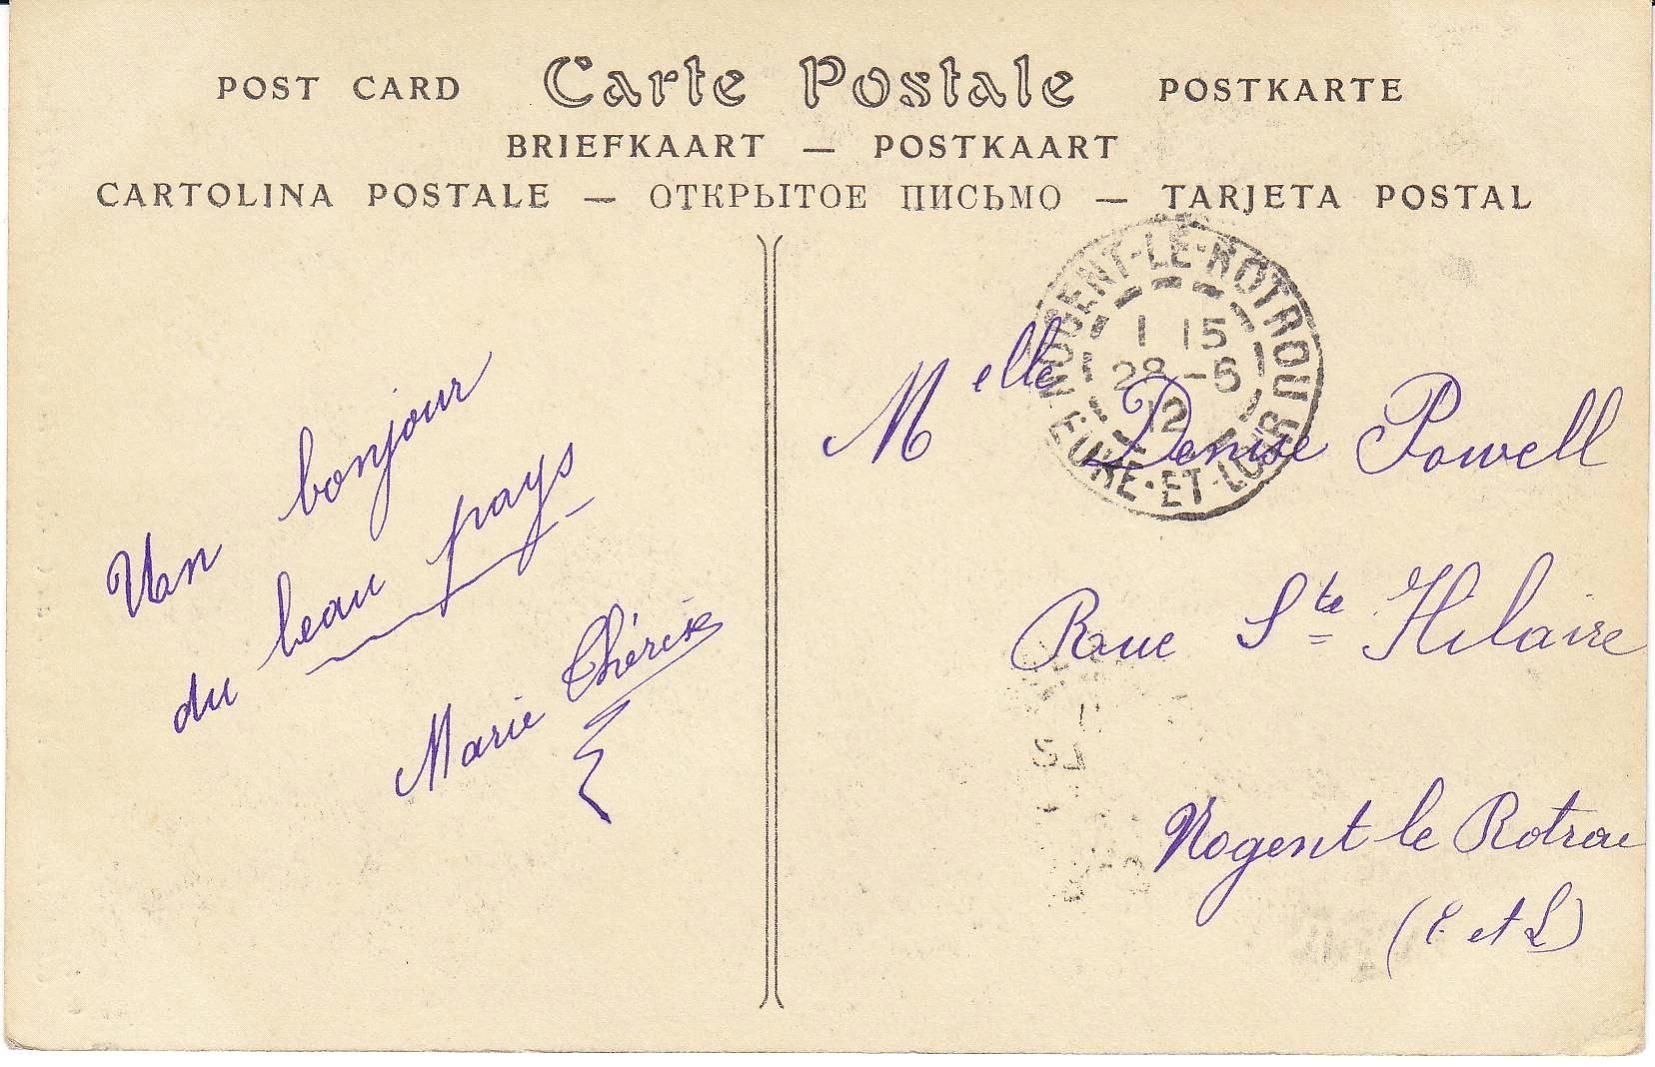 POST CARD Carte Postale POSTKARTE
BRIEFKAART — POSTKAART
CARTOLINA POSTALE — ОТКРЫТОЕ ПИСЬМО — TARJETA POSTAL
Un bonjour
du beau pays
Marie Thérèse
NOGENT-LE-ROTROU
1 15
28-5
12
EURE-ET-LOIR
Melle Denise Powell
Rue Ste Hilaire
Nogent le Rotrou
(E et L)